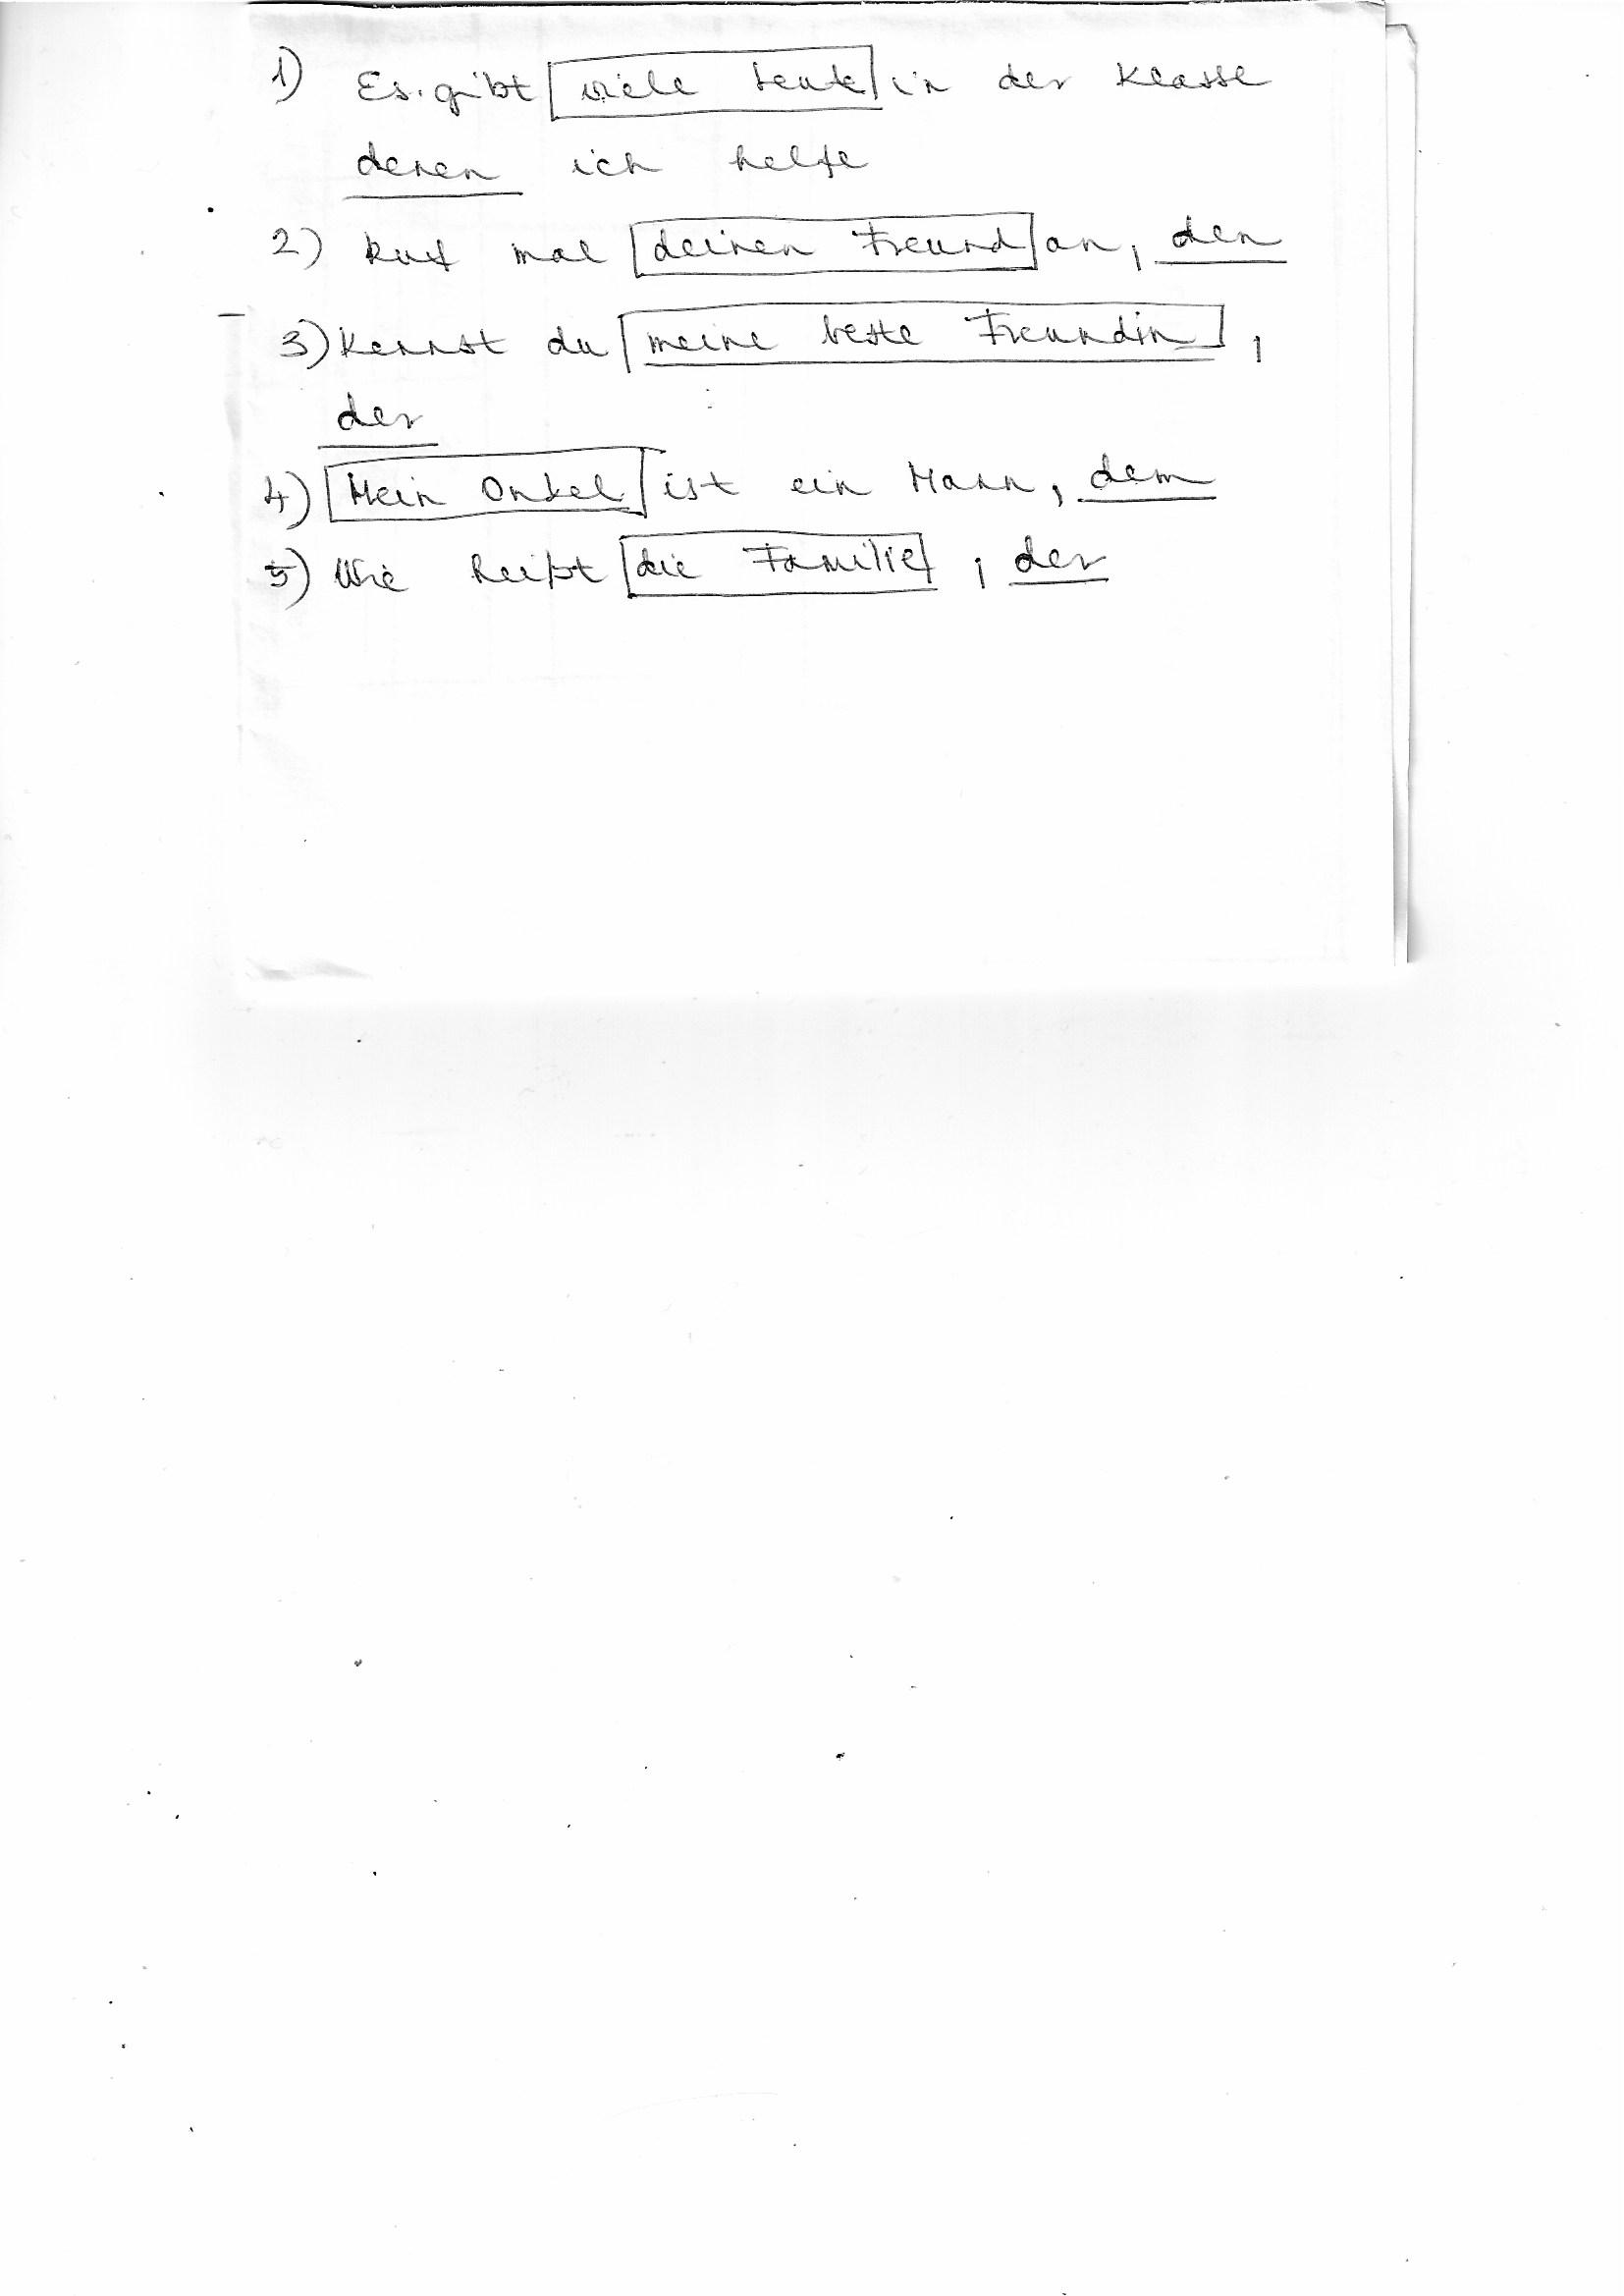 1) Es gibt viele Leute in der Klasse
denen ich helfe
2) Ruf mal deinen Freund an, den
3) Kennst du meine beste Freundin,
der
4) Mein Onkel ist ein Mann, dem
5) Wie heißt die Familie, der